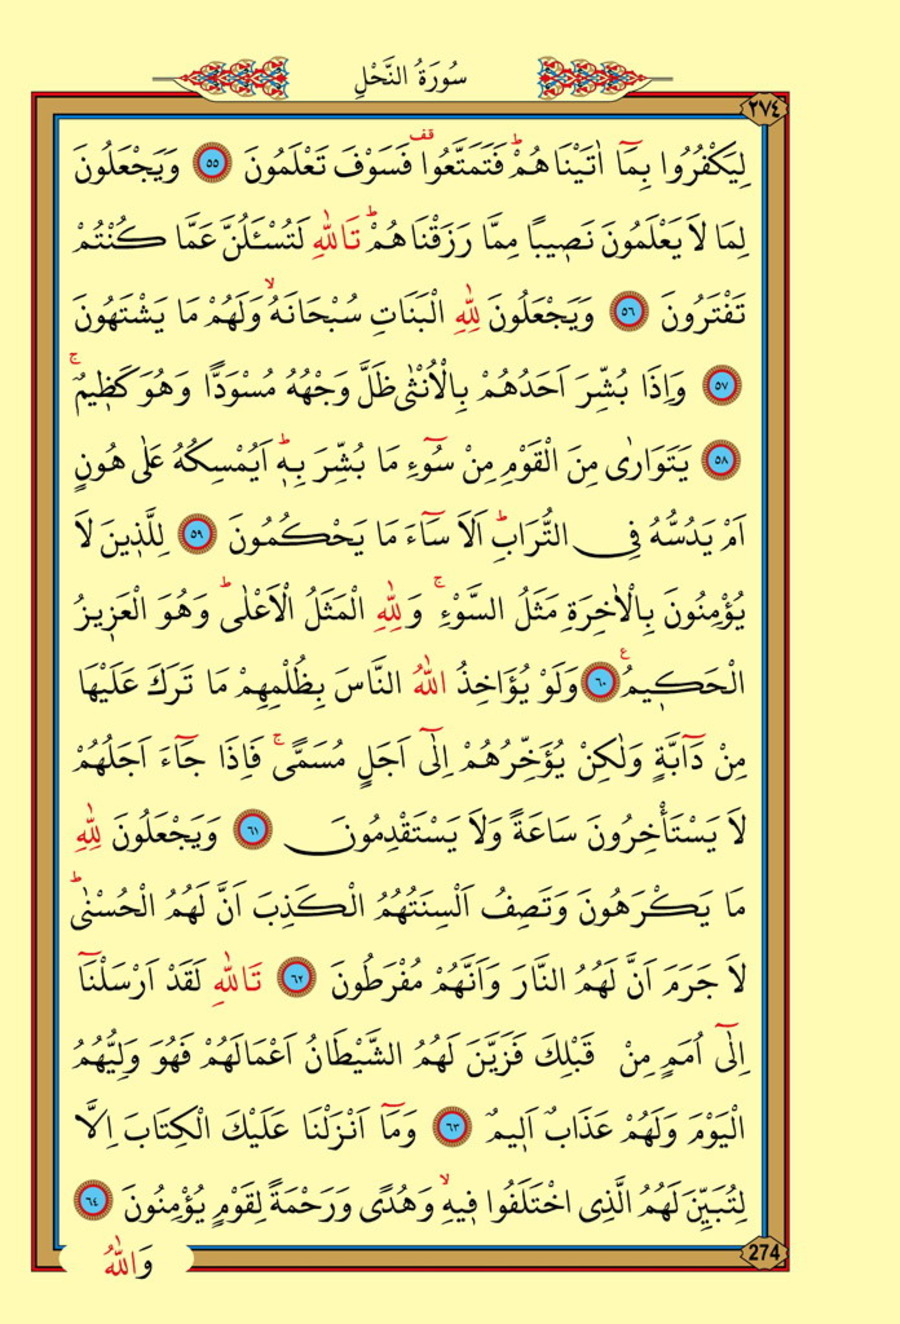 سُورَةُ النَّحْلِ
٢٧٤
لِيَكْفُرُوا بِمَٓا اٰتَيْنَاهُمْۜ فَتَمَتَّعُوا۠ قف فَسَوْفَ تَعْلَمُونَ ٥٥ وَيَجْعَلُونَ
لِمَا لَا يَعْلَمُونَ نَص۪يبًا مِمَّا رَزَقْنَاهُمْۜ تَاللّٰهِ لَتُسْـَٔلُنَّ عَمَّا كُنْتُمْ
تَفْتَرُونَ ٥٦ وَيَجْعَلُونَ لِلّٰهِ الْبَنَاتِ سُبْحَانَهُۙ وَلَهُمْ مَا يَشْتَهُونَ
٥٧ وَاِذَا بُشِّرَ اَحَدُهُمْ بِالْاُنْثٰى ظَلَّ وَجْهُهُ مُسْوَدًّا وَهُوَ كَظ۪يمٌۚ
٥٨ يَتَوَارٰى مِنَ الْقَوْمِ مِنْ سُٓوءِ مَا بُشِّرَ بِه۪ۜ اَيُمْسِكُهُ عَلٰى هُونٍ
اَمْ يَدُسُّهُ فِي التُّرَابِۜ اَلَا سَٓاءَ مَا يَحْكُمُونَ ٥٩ لِلَّذ۪ينَ لَا
يُؤْمِنُونَ بِالْاٰخِرَةِ مَثَلُ السَّوْءِۚ وَلِلّٰهِ الْمَثَلُ الْاَعْلٰىۜ وَهُوَ الْعَز۪يزُ
الْحَك۪يمُ۟ ٦٠ وَلَوْ يُؤَاخِذُ اللّٰهُ النَّاسَ بِظُلْمِهِمْ مَا تَرَكَ عَلَيْهَا
مِنْ دَٓابَّةٍ وَلٰكِنْ يُؤَخِّرُهُمْ اِلٰٓى اَجَلٍ مُسَمًّىۚ فَاِذَا جَٓاءَ اَجَلُهُمْ
لَا يَسْتَأْخِرُونَ سَاعَةً وَلَا يَسْتَقْدِمُونَ ٦١ وَيَجْعَلُونَ لِلّٰهِ
مَا يَكْرَهُونَ وَتَصِفُ اَلْسِنَتُهُمُ الْكَذِبَ اَنَّ لَهُمُ الْحُسْنٰىۜ
لَا جَرَمَ اَنَّ لَهُمُ النَّارَ وَاَنَّهُمْ مُفْرَطُونَ ٦٢ تَاللّٰهِ لَقَدْ اَرْسَلْنَٓا
اِلٰٓى اُمَمٍ مِنْ قَبْلِكَ فَزَيَّنَ لَهُمُ الشَّيْطَانُ اَعْمَالَهُمْ فَهُوَ وَلِيُّهُمُ
الْيَوْمَ وَلَهُمْ عَذَابٌ اَل۪يمٌ ٦٣ وَمَٓا اَنْزَلْنَا عَلَيْكَ الْكِتَابَ اِلَّا
لِتُبَيِّنَ لَهُمُ الَّذِي اخْتَلَفُوا ف۪يهِۙ وَهُدًى وَرَحْمَةً لِقَوْمٍ يُؤْمِنُونَ ٦٤
274
وَاللّٰهُ